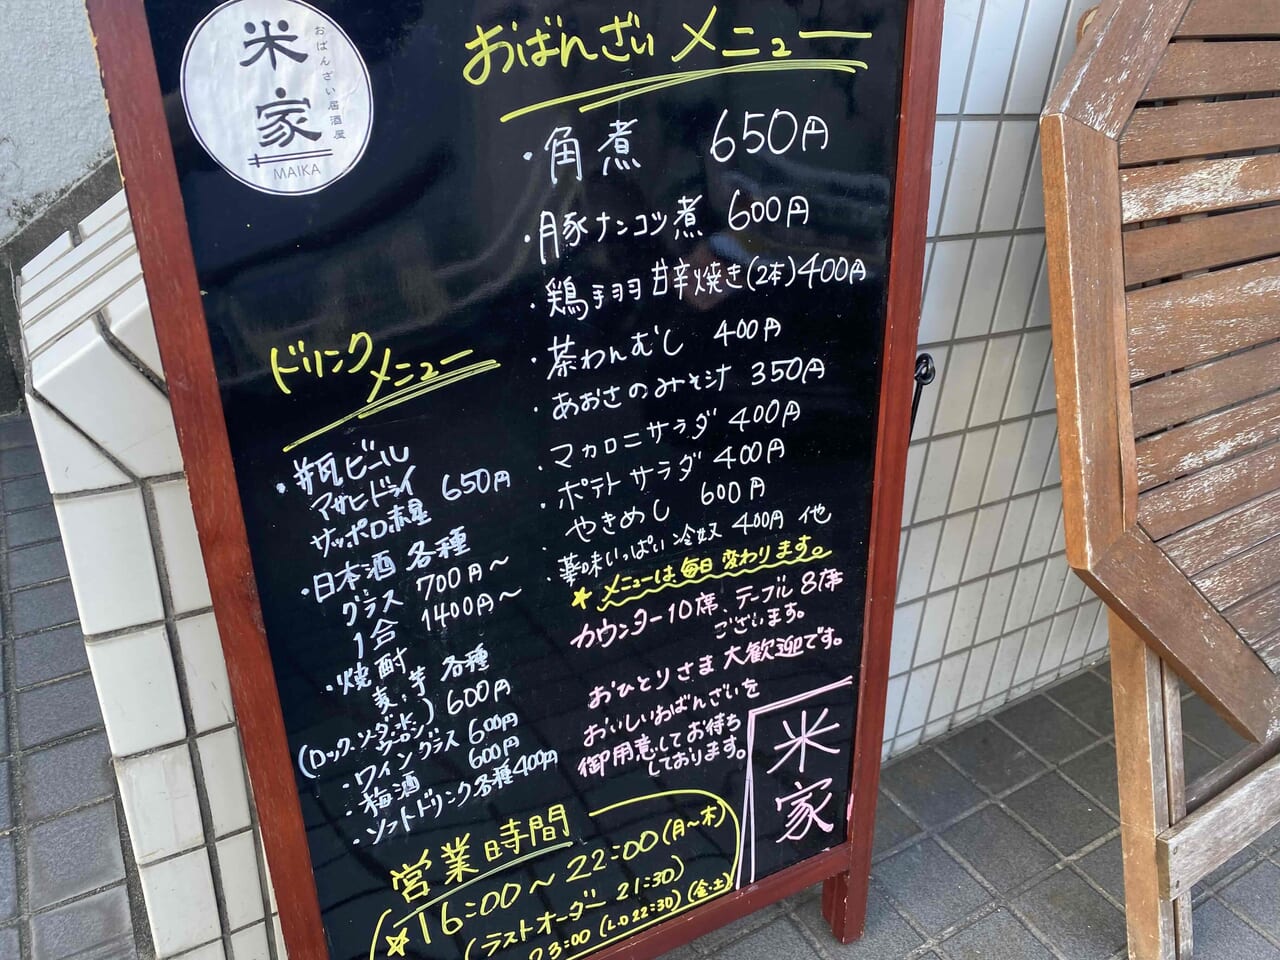 米家
おばんざい居酒屋
MAIKA
おばんざいメニュー
・角煮 650円
・豚ナンコツ煮 600円
・鶏手羽甘辛焼き(2本)400円
・茶わんむし 400円
・あおさのみそ汁 350円
・マカロニサラダ 400円
・ポテトサラダ 400円
・やきめし 600円
・薬味いっぱい冷奴 400円 他
☆メニューは毎日変わります。
カウンター10席、テーブル8席
ございます。
おひとりさま大歓迎です。
おいしいおばんざいを
御用意してお待ち
しております。
米家
ドリンクメニュー
・瓶ビール
アサヒドライ
サッポロ赤星 650円
・日本酒 各種
グラス 700円～
1合 1400円～
・焼酎
麦・芋 各種
(ロック・ソーダ・水・ウーロン) 600円
・ワイングラス 600円
・梅酒 600円
・ソフトドリンク各種400円
営業時間
☆16:00～22:00(月～木)
(ラストオーダー 21:30)
23:00 (L.O 22:30) (金・土)